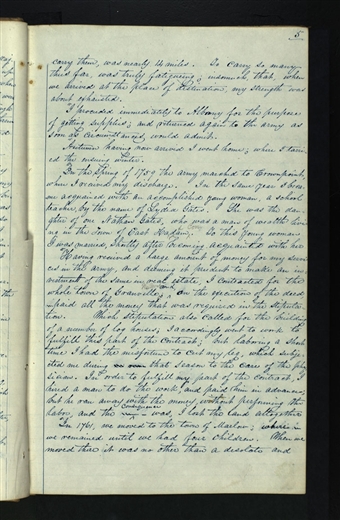 5
carry them, was nearly 14 miles. To carry so many
thus far, was truly fatigueing; insomuch, that, when
we arrived at the place of destination, my strength was
about exhausted.
I proceeded immediately to Albany for the purpose
of getting supplies; and returned again to the army as
soon as circumstances would admit.
Autumn having now arrived I went home; where I tarri-
ed the ensuing winter.
In the Spring of 1759 the army marched to Crownpoint,
where I received my discharge. In the same year I beca-
me acquainted with an accomplished young woman, a school
teacher, by the name of Lydia Gates. She was the dau-
ghter of one Nathan Gates, who was a man of wealth livi-
ng in the town of East Haddam. To this young woman
I was married, shortly after becoming acquainted with her
Having received a large amount of money for my servi-
ces in the army, and deeming it prudent to make an in-
vestment of the same in real estate, I contracted for the
whole town of Granville, On the execution of the deed
paid all the money that was required in the stipula-
tion. Which stipulation also called for the building
of a number of log houses. I accordingly went to work to
fulfill this part of the contract; but laboring a short
time I had the misfortune to cut my leg, which subje-
cted me during that season to the care of the phy-
sicians. In order to fulfill my part of the contract, I
hired a man to do the work, and paid him in advance;
but he ran away with the money, without performing the
labor, and the consequence was, I lost the land altogether
In 1761, we moved to the town of Marlow; where
we remained until we had four children. When we
moved there it was no other than a desolate and